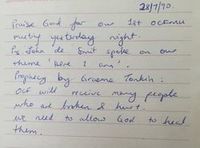 28/7/90
Praise God for our 1st OCF menu
meeting yesterday night.
Ps John de Smit spoke on our
theme 'Here I am'.
Prophecy by Graeme Tonkin:
OCF will receive many people
who are broken & hurt.
We need to allow God to heal
them.